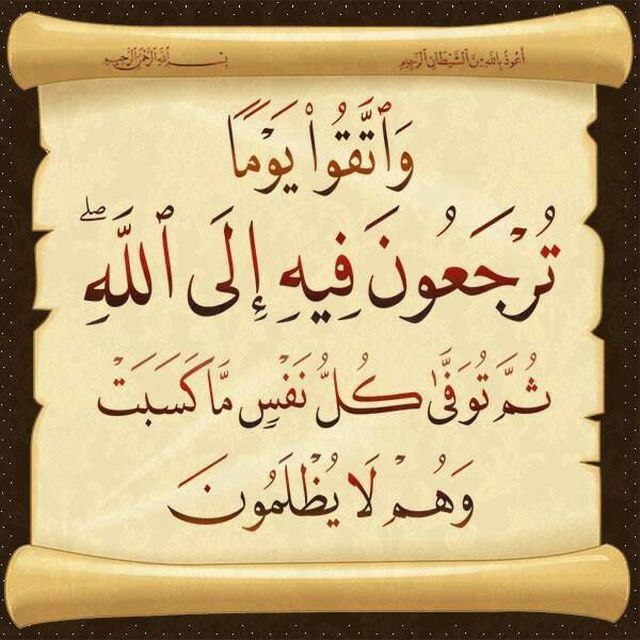 أعوذ بالله من الشيطان الرجيم
بسم الله الرحمن الرحيم
وَٱتَّقُوا۟ يَوْمًا
تُرْجَعُونَ فِيهِ إِلَى ٱللَّهِ ۖ
ثُمَّ تُوَفَّىٰ كُلُّ نَفْسٍ مَّا كَسَبَتْ
وَهُمْ لَا يُظْلَمُونَ